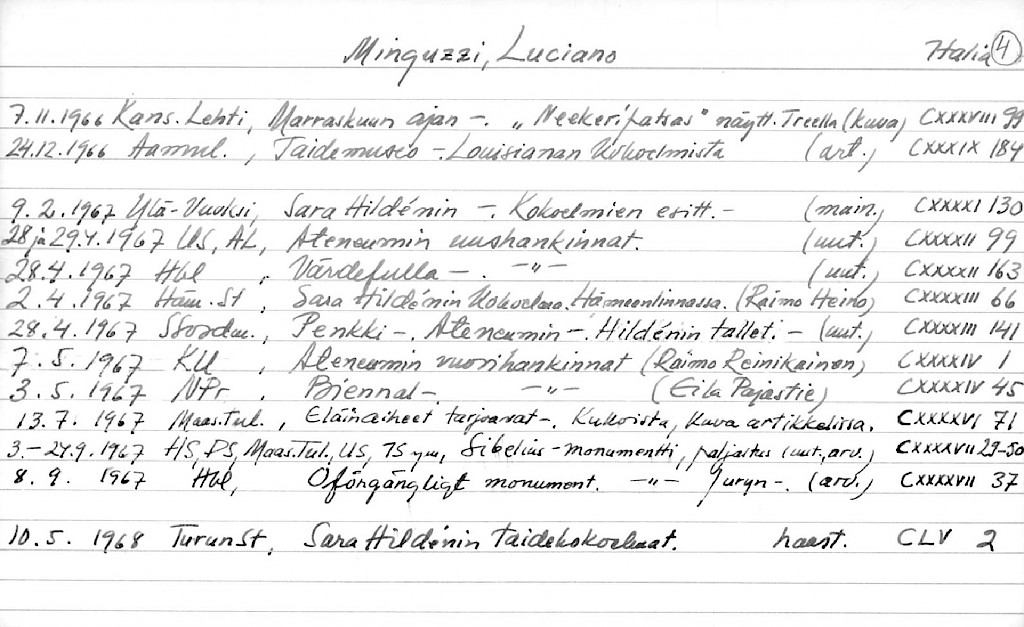 Minguzzi, Luciano Italia 4
7.11.1966 Kans. Lehti, Marraskuun ajan –. „Neekeripatsas" näytt. Treella (kuva) CXXXVIII 99
24.12.1966 Aamul., Taidemuseo –. Louisianan kokoelmista (art.) CXXXIX 184
9.2.1967 Ylä-Vuoksi, Sara Hildénin –. Kokoelmien esitt. – (main.) CXXXXI 130
28 ja 29.4.1967 US, AL, Ateneumin uushankinnat. (uut.) CXXXXII 99
28.4.1967 Hbl, Värdefulla –. –"– (uut.) CXXXXII 163
2.4.1967 Häm. S:t, Sara Hildénin kokoelma Hämeenlinnassa. (Raimo Heino) CXXXXIII 66
28.4.1967 , Penkki –. Ateneumin –. Hildénin tallet. – (uut.) CXXXXIII 141
7.5.1967 KU, Ateneumin vuosihankinnat (Raimo Reinikainen) CXXXXIV 1
3.5.1967 NPr. Biennal –. –"– (Eila Pajastie) CXXXXIV 45
13.7.1967 Maas.Tul., Eläinaiheet tarjoavat –. Kukoista, kuva artikkelissa. CXXXXVI 71
3.–24.9.1967 HS, PS, Maas.Tul., US, TS ym, Sibelius-monumentti, paljastus (uut., arv.) CXXXXVII 29-50
8.9. 1967 Hbl, Oförgängligt monument. –"– Juryn –. (arv.) CXXXXVII 37
10.5. 1968 TurunSt, Sara Hildénin taidekokoelmat. haast. CLV 2